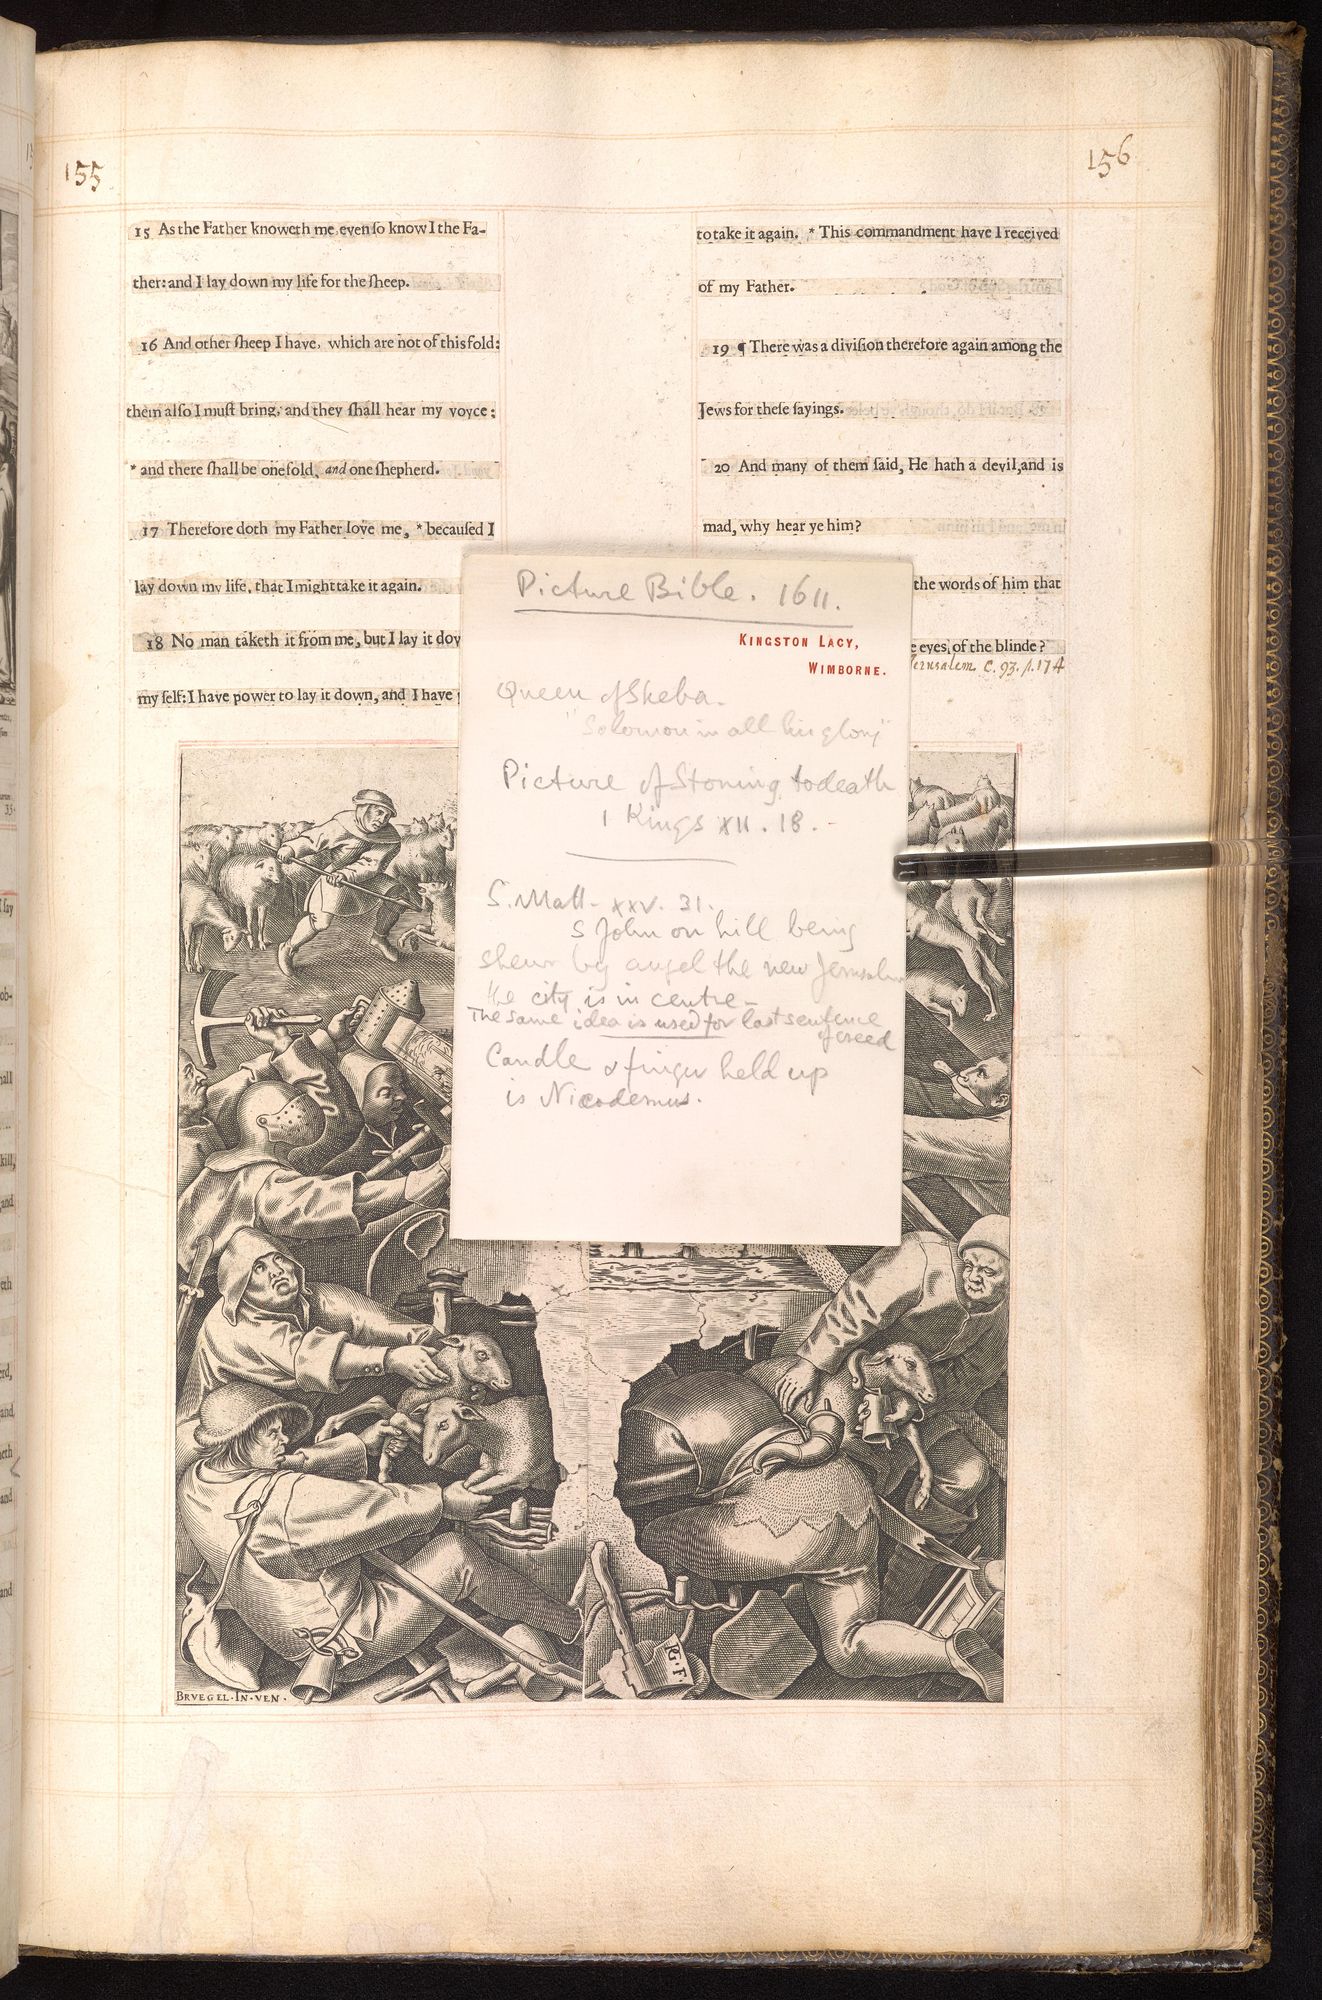 155
156
15 As the Father knoweth me, even ſo know I the Fa-
ther: and I lay down my life for the ſheep.
16 And other ſheep I have, which are not of this fold:
them alſo I muſt bring, and they ſhall hear my voyce:
* and there ſhall be one fold, and one ſhepherd.
17 Therefore doth my Father love me, * becauſed I
lay down my life, that I might take it again.
18 No man taketh it from me, but I lay it dov
my ſelf: I have power to lay it down, and I have
to take it again. * This commandment have I received
of my Father.
19 ¶ There was a diviſion therefore again among the
Jews for theſe ſayings.
20 And many of them ſaid, He hath a devil, and is
mad, why hear ye him?
the words of him that
e eyes of the blinde?
Jerusalem C. 93. p. 174
Picture Bible. 1611.
KINGSTON LACY,
WIMBORNE.
Queen of Sheba.
"Solomon in all his glory"
Picture of Stoning to death
1 Kings XII. 18.
S. Matt- XXV. 31.
S John on hill being
shewn by angel the new Jerusalem
the city is in centre-
The same idea is used for last sentence
of creed
Candle & finger held up
is Nicodemus.
BRVEGEL·IN·VEN·
PG·F·